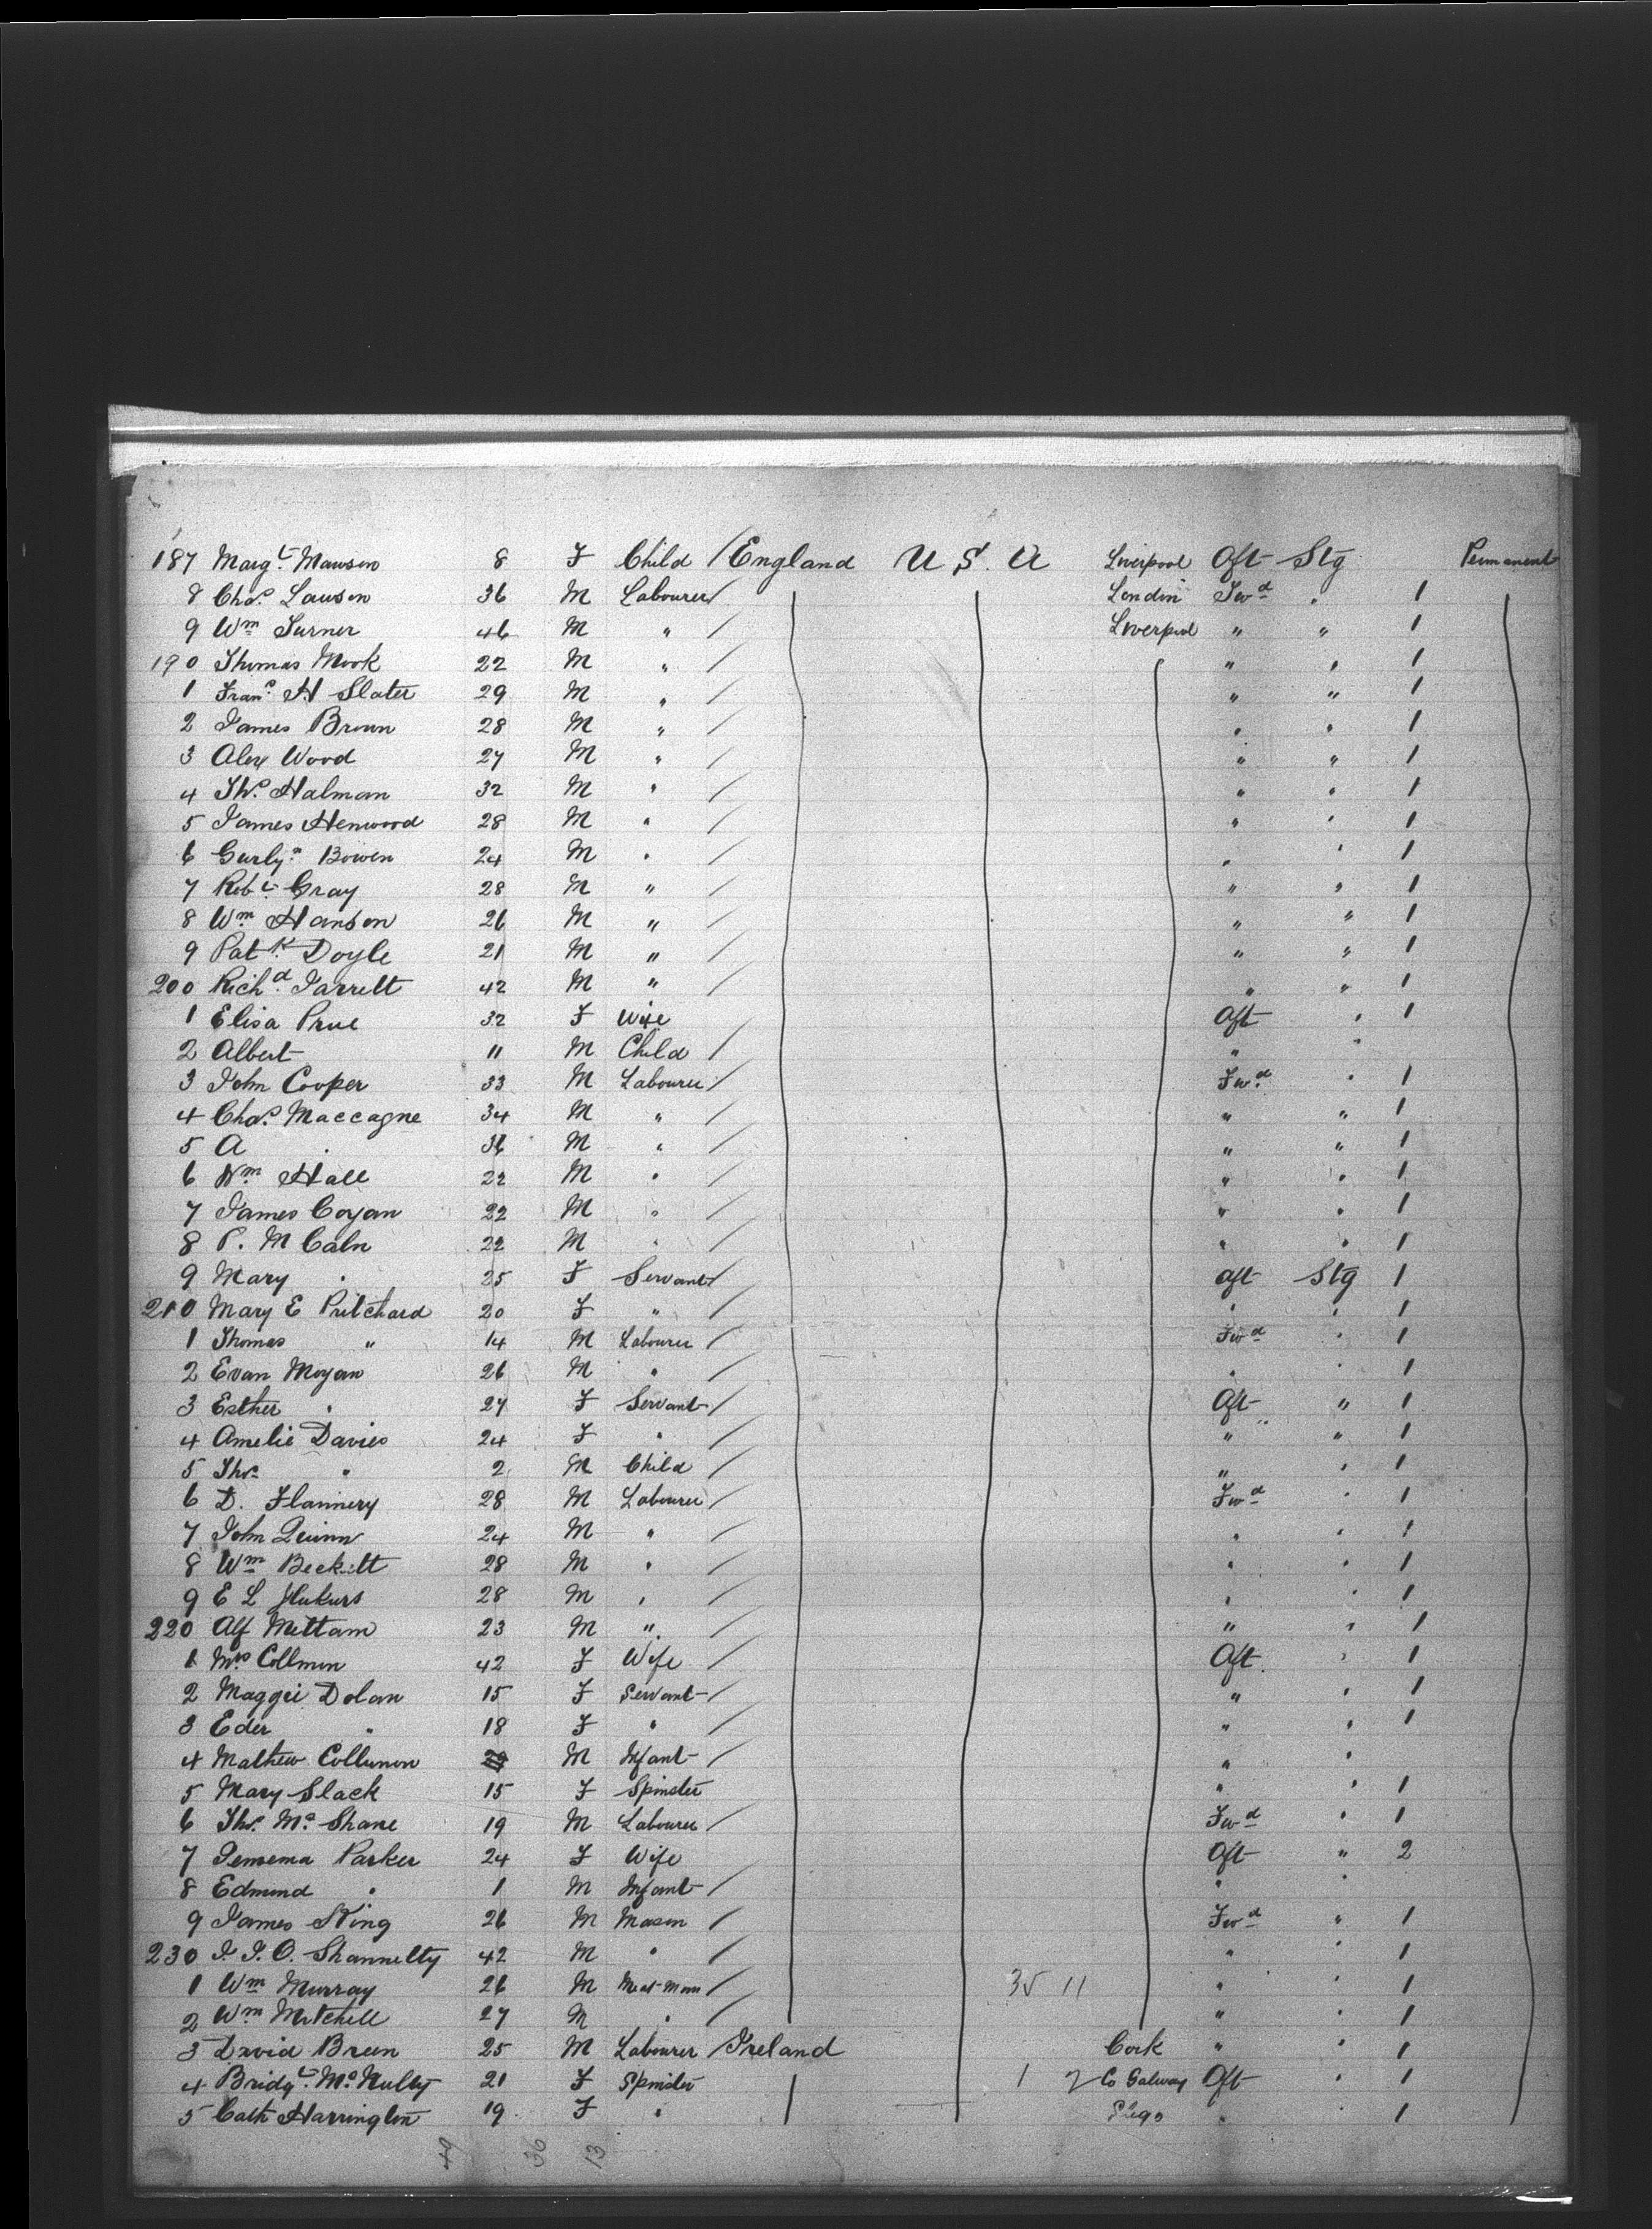 187 Margt Mawson 8 F Child / England U. S. A Liverpool Aft Stg Permanent
8 Chas. Lawson 36 M Labourer / London Fwd " 1
9 Wm Turner 46 M " / Liverpool " " 1
190 Thomas Mook 22 M " / " " 1
1 Frans. H Slater 29 M " / " " 1
2 James Brown 28 M " / " " 1
3 Alex Wood 27 M " / " " 1
4 Tho. Halman 32 M " / " " 1
5 James Henwood 28 M " / " " 1
6 Bowen 24 M " / " " 1
7 Robt Gray 28 M " / " " 1
8 Wm Hanson 26 M " / " " 1
9 Patk Doyle 21 M " / " " 1
200 Richd Jarrett 42 M " / " " 1
1 Elisa Prue 32 F Wife Aft " 1
2 Albert 11 M Child / " "
3 John Cooper 33 M Labourer / Fwd " 1
4 Chas. Maccagne 34 M " / " " 1
5 A " 36 M " / " " 1
6 Wm Hall 22 M " / " " 1
7 James Coyan 22 M " / " " 1
8 P. M Caln 22 M " / " " 1
9 Mary " 25 F Servant / aft Stg 1
210 Mary E Pritchard 20 F " / " " 1
1 Thomas " 14 M Labourer / Fwd " 1
2 Evan Moyan 26 M " / " " 1
3 Esther " 27 F Servant / Aft " 1
4 Amelie Davies 24 F " / " " 1
5 Thos " 2 M Child / " " 1
6 D. Flannery 28 M Labourer / Fwd " 1
7 John Quinn 24 M " / " " 1
8 Wm Beckett 28 M " / " " 1
9 E L 28 M " / " " 1
220 Alf Mettam 23 M " / " " 1
1 Mrs Collmon 42 F Wife / Aft " 1
2 Maggie Dolan 15 F Servant / " " 1
3 Eder " 18 F " / " " 1
4 Mathew Collumon M Infant / " "
5 Mary Slack 15 F Spinster " " 1
6 Tho. Mc Shane 19 M Labourer / Fwd " 1
7 Jemema Parker 24 F Wife Aft " 2
8 Edmund " 1 M Infant / " "
9 James King 26 M Mason / Fwd " 1
230 J. J. O. Shannelty 42 M " / " " 1
1 Wm Murray 26 M Meat-Man / 35 11 " " 1
2 Wm Mitchell 27 M " / " " 1
3 David Breen 25 M Labourer / Ireland Cork " " 1
4 Bridgt. Mc Nulty 21 F Spinster 1 2 Co Galway Aft " 1
5 Cath Harrington 19 F " Sligo " " 1
49 36 13